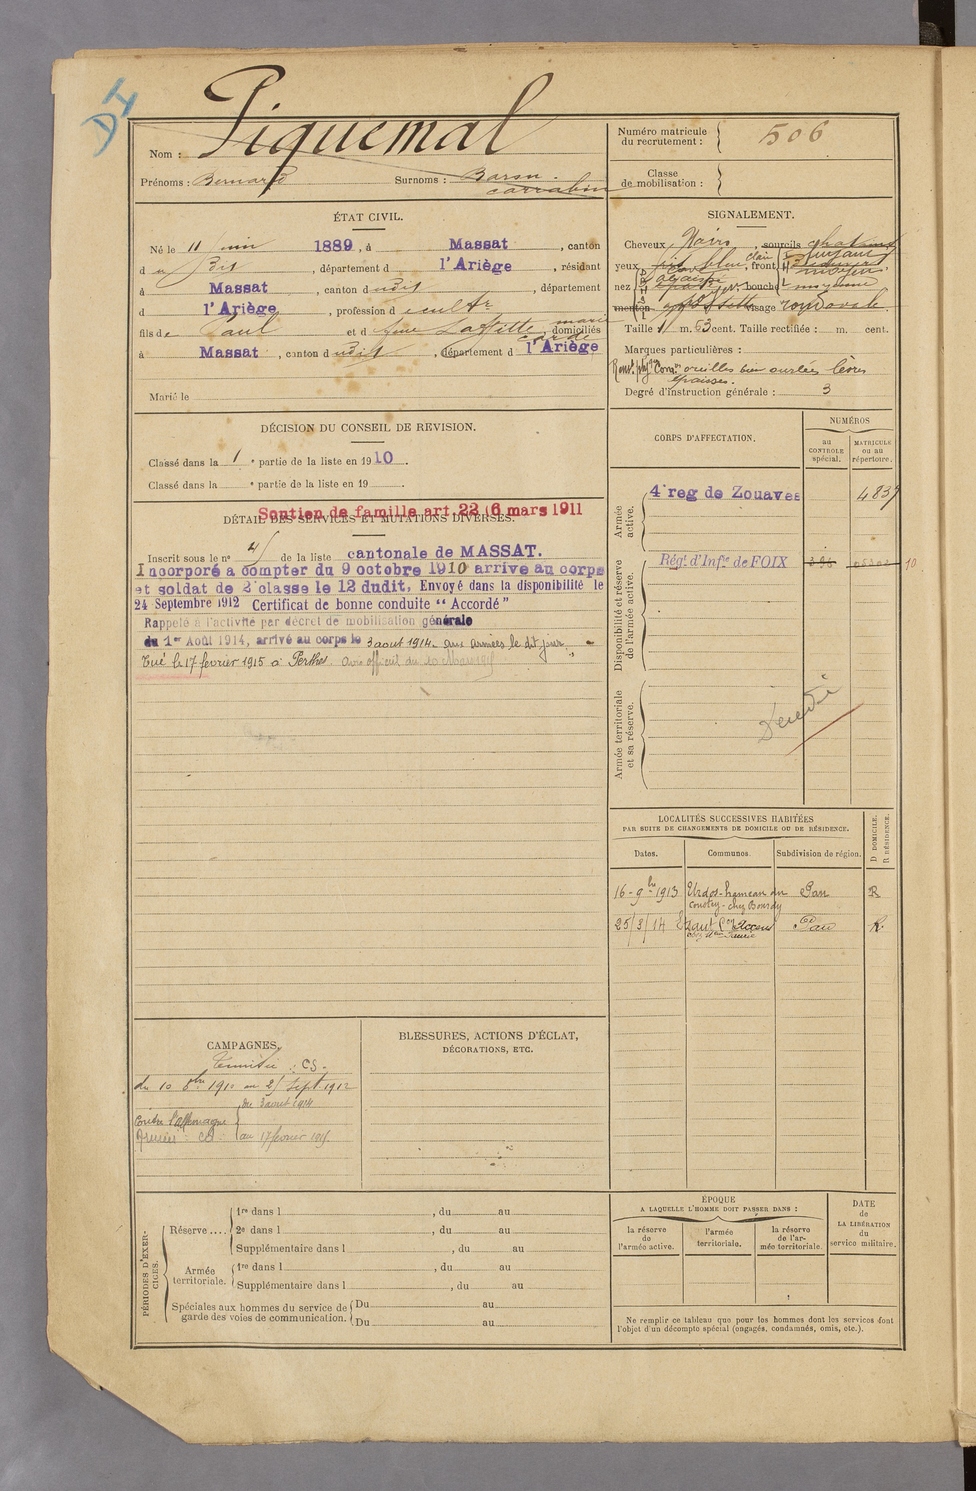 DI
Nom : Piquemal
Prénoms : Bernard Surnoms : Baron.
carrabin
Numéro matricule
du recrutement : 506
Classe
de mobilisation :
ÉTAT CIVIL.
Né le 11 juin 1889, à Massat, canton
du dit, département d l'Ariège, résidant
à Massat, canton dudit, département
d l'Ariège, profession d ecult r
fils de Paul et d Anne Laffitte, domiciliés
à Massat, canton dudit, département d l'Ariège
Marié le
SIGNALEMENT.
Cheveux Noirs, sourcils chatains
yeux bleu clair, front fuyant
moyen
nez cave, bouche moyenne
menton visage rond ovale
Taille 1 m. 63 cent. Taille rectifiée : m. cent.
Marques particulières :
oreilles bien ourlées lèvres
épaisses.
Degré d'instruction générale : 3
DÉCISION DU CONSEIL DE REVISION.
Classé dans la 1e partie de la liste en 1910.
Classé dans la e partie de la liste en 19 .
Soutien de famille art. 22 (6 mars 1911
DÉTAIL DES SERVICES ET MUTATIONS DIVERSES.
Inscrit sous le n° 4 de la liste cantonale de MASSAT.
Incorporé a compter du 9 octobre 1910 arrive au corps
et soldat de 2e classe le 12 dudit, Envoyé dans la disponibilité le
24 Septembre 1912 Certificat de bonne conduite "Accordé"
Rappelé à l'activité par décret de mobilisation générale
du 1er Août 1914, arrivé au corps le 3 aout 1914. aux armées le dit jour.
Tué le 17 février 1915 à Perthes. avis officiel du 20 Mars 1915
CORPS D'AFFECTATION.
NUMÉROS
au
CONTROLE
spécial.
MATRICULE
ou au
répertoire.
Armée
active.
4e reg de Zouaves 4837
Disponibilité et réserve
de l'armée active.
Régt d'Infie de FOIX 396 05302 10
Armée territoriale
et sa réserve.
Décédé
LOCALITÉS SUCCESSIVES HABITÉES
PAR SUITE DE CHANGEMENTS DE DOMICILE OU DE RÉSIDENCE.
Dates. Communes. Subdivision de région. D DOMICILE.
R RÉSIDENCE.
16-9bre 1913 Urdos-hameau du Pau R
chez Bourdy
25/3/14 Pau R.
CAMPAGNES.
Tunisie : CS.
du 10 8bre 1910 au 25 Sept. 1912
Contre l'Allemagne du 3 aout 1914
au 17 février 1915.
BLESSURES, ACTIONS D'ÉCLAT,
DÉCORATIONS, ETC.
PÉRIODES D'EXER-
CICES.
Réserve .... 1re dans l , du au
2e dans l , du au
Supplémentaire dans l , du au
Armée
territoriale. 1re dans l , du au
Supplémentaire dans l , du au
Spéciales aux hommes du service de
garde des voies de communication. Du au
Du au
ÉPOQUE
A LAQUELLE L'HOMME DOIT PASSER DANS :
la réserve
de
l'armée active.
l'armée
territoriale.
la réserve
de l'ar-
mée territoriale.
DATE
de
LA LIBÉRATION
du
service militaire.
Ne remplir ce tableau que pour les hommes dont les services font
l'objet d'un décompte spécial (engagés, condamnés, omis, etc.).